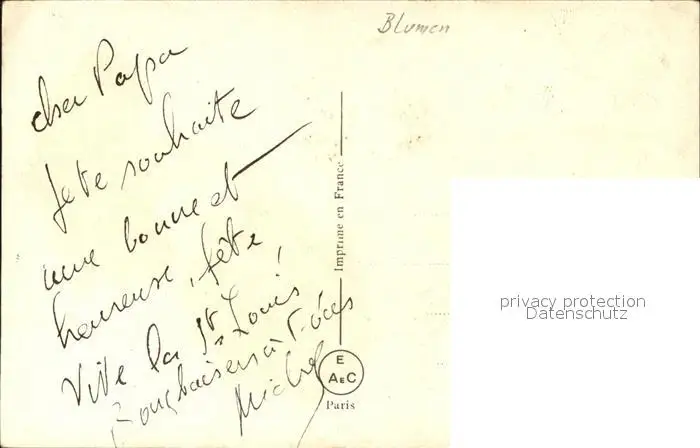 Blumen
cher Papa
je te souhaite
une bonne et
heureuse fête
Vive la St Louis!
baisers à
Michel
Imprimé en France
E
A E C
Paris
privacy protection
Datenschutz